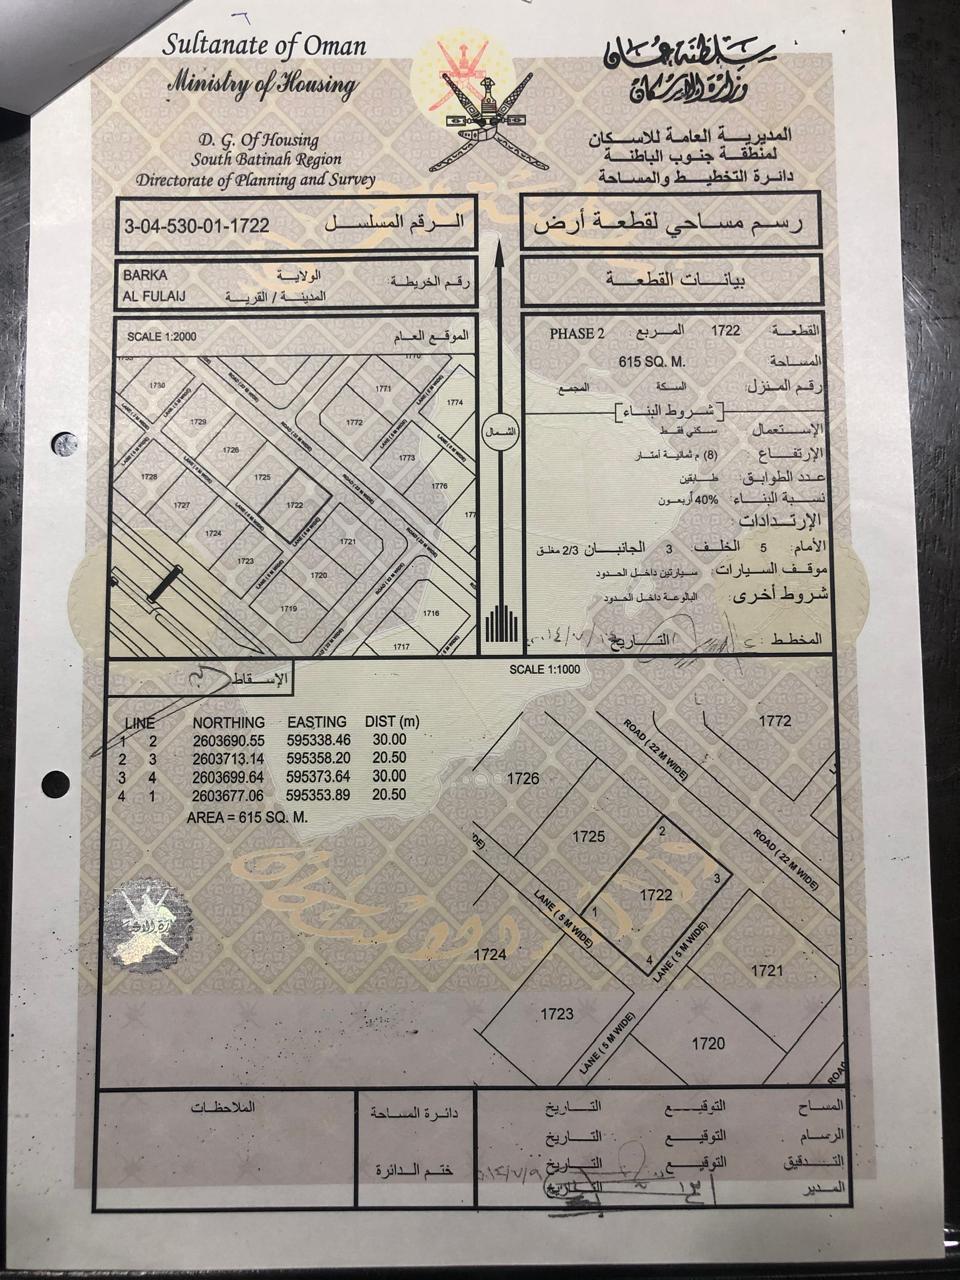 Sultanate of Oman
Ministry of Housing
D. G. Of Housing
South Batinah Region
Directorate of Planning and Survey
سلطنة عمان
وزارة الإسكان
المديرية العامة للاسكان
لمنطقة جنوب الباطنة
دائرة التخطيط والمساحة
رسم مساحي لقطعة أرض
الرقم المسلسل 3-04-530-01-1722
بيانات القطعة
رقم الخريطة:
الولاية BARKA
المدينة / القرية AL FULAIJ
القطعة: 1722 المربع PHASE 2
المساحة 615 SQ. M.
رقم المنزل: السكة المجمع
شروط البناء
الإستعمال سكني فقط
الإرتفاع: (8) م ثمانية أمتار
عدد الطوابق: طابقين
نسبة البناء: 40% أربعون
الإرتدادات:
الأمام: 5 الخلف: 3 الجانبان 2/3 مغلق
موقف السيارات: سيارتين داخل الحدود
شروط أخرى: البالوعة داخل الحدود
المخطط: التاريخ
الشمال
SCALE 1:2000 الموقع العام
1730
1729
1726
1725
1722
1728
1727
1724
1723
1721
1720
1719
1771
1772
1773
1774
1776
177
1716
1717
1770
ROAD ( 22 M WIDE)
ROAD ( 22 M WIDE)
LANE ( 5 M WIDE)
LANE ( 5 M WIDE)
SCALE 1:1000
الإسقاط
LINE NORTHING EASTING DIST (m)
1 2 2603690.55 595338.46 30.00
2 3 2603713.14 595358.20 20.50
3 4 2603699.64 595373.64 30.00
4 1 2603677.06 595353.89 20.50
AREA = 615 SQ. M.
1772
ROAD ( 22 M WIDE)
1726
1725
2
ROAD ( 22 M WIDE)
3
1722
1
LANE ( 5 M WIDE)
4
LANE ( 5 M WIDE)
1724
1721
1723
LANE ( 5 M WIDE)
1720
ROAD
الملاحظات
دائرة المساحة
ختم الدائرة
المساح التوقيع التاريخ
الرسام التوقيع التاريخ
التدقيق التوقيع التاريخ
المدير التاريخ